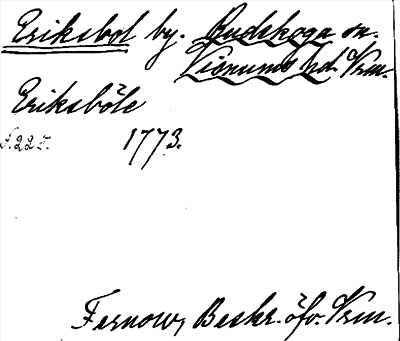 Eriksbol by. Rudskoga sn.
Visnums hd. Vrm.
Eriksböle
F. 225. 1773.
Fernow, Beskr. öfv. Vrm.